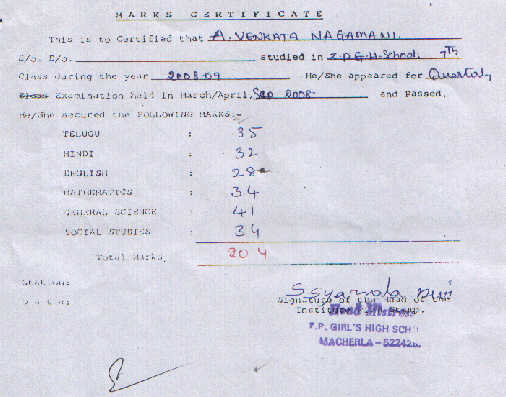 MARKS CERTIFICATE
This is to Certified that A. VENKATA NAGAMANI.
S/o. D/o. studied in Z.P.G.H. School, 7TH
Class during the year 2008-09 He/She appeared for Quartaly
Class Examination held in March/April, Sep 2008 and Passed.
He/She secured the FOLLOWING MARKS:-
TELUGU : 35
HINDI : 32
ENGLISH : 28
MATHEMATICS : 34
GENERAL SCIENCE : 41
SOCIAL STUDIES : 34
Total Marks, 204
Station:
Signature of the Head of the
Institution Stamp.
Head Mistress
Z.P. GIRL'S HIGH SCHO
MACHERLA - 522426.